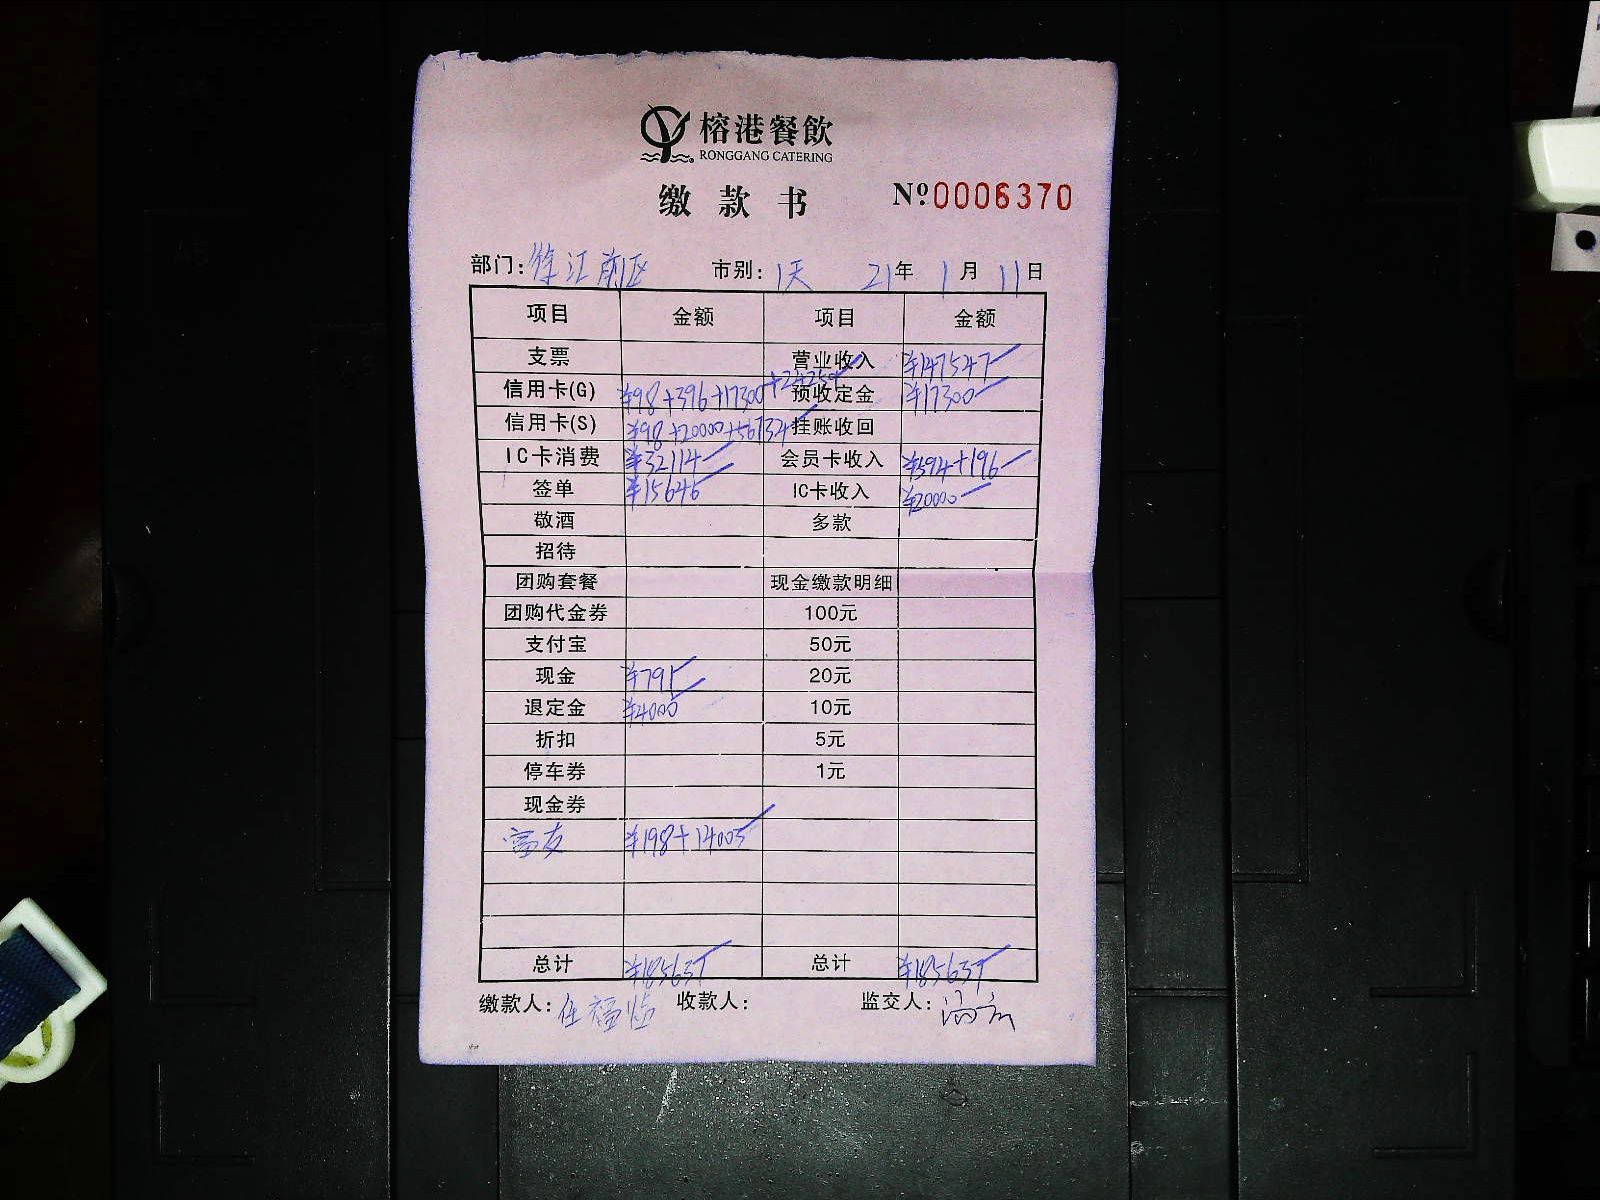 榕港餐飲
RONGGANG CATERING
缴款书 Nº0006370
部门:徐汇前区 市别:1天 21年1月11日
项目 金额 项目 金额
支票 营业收入 ¥147547
信用卡(G) ¥98+396+17300 预收定金 ¥17300
信用卡(S) ¥98+20000+56734 挂账收回
IC卡消费 ¥32114 会员卡收入 ¥594+196
签单 ¥15646 IC卡收入 ¥20000
敬酒 多款
招待
团购套餐 现金缴款明细
团购代金券 100元
支付宝 50元
现金 ¥795 20元
退定金 ¥4000 10元
折扣 5元
停车券 1元
现金券
富友 ¥198+14005
总计 ¥185637 总计 ¥185637
缴款人:任福临 收款人: 监交人: